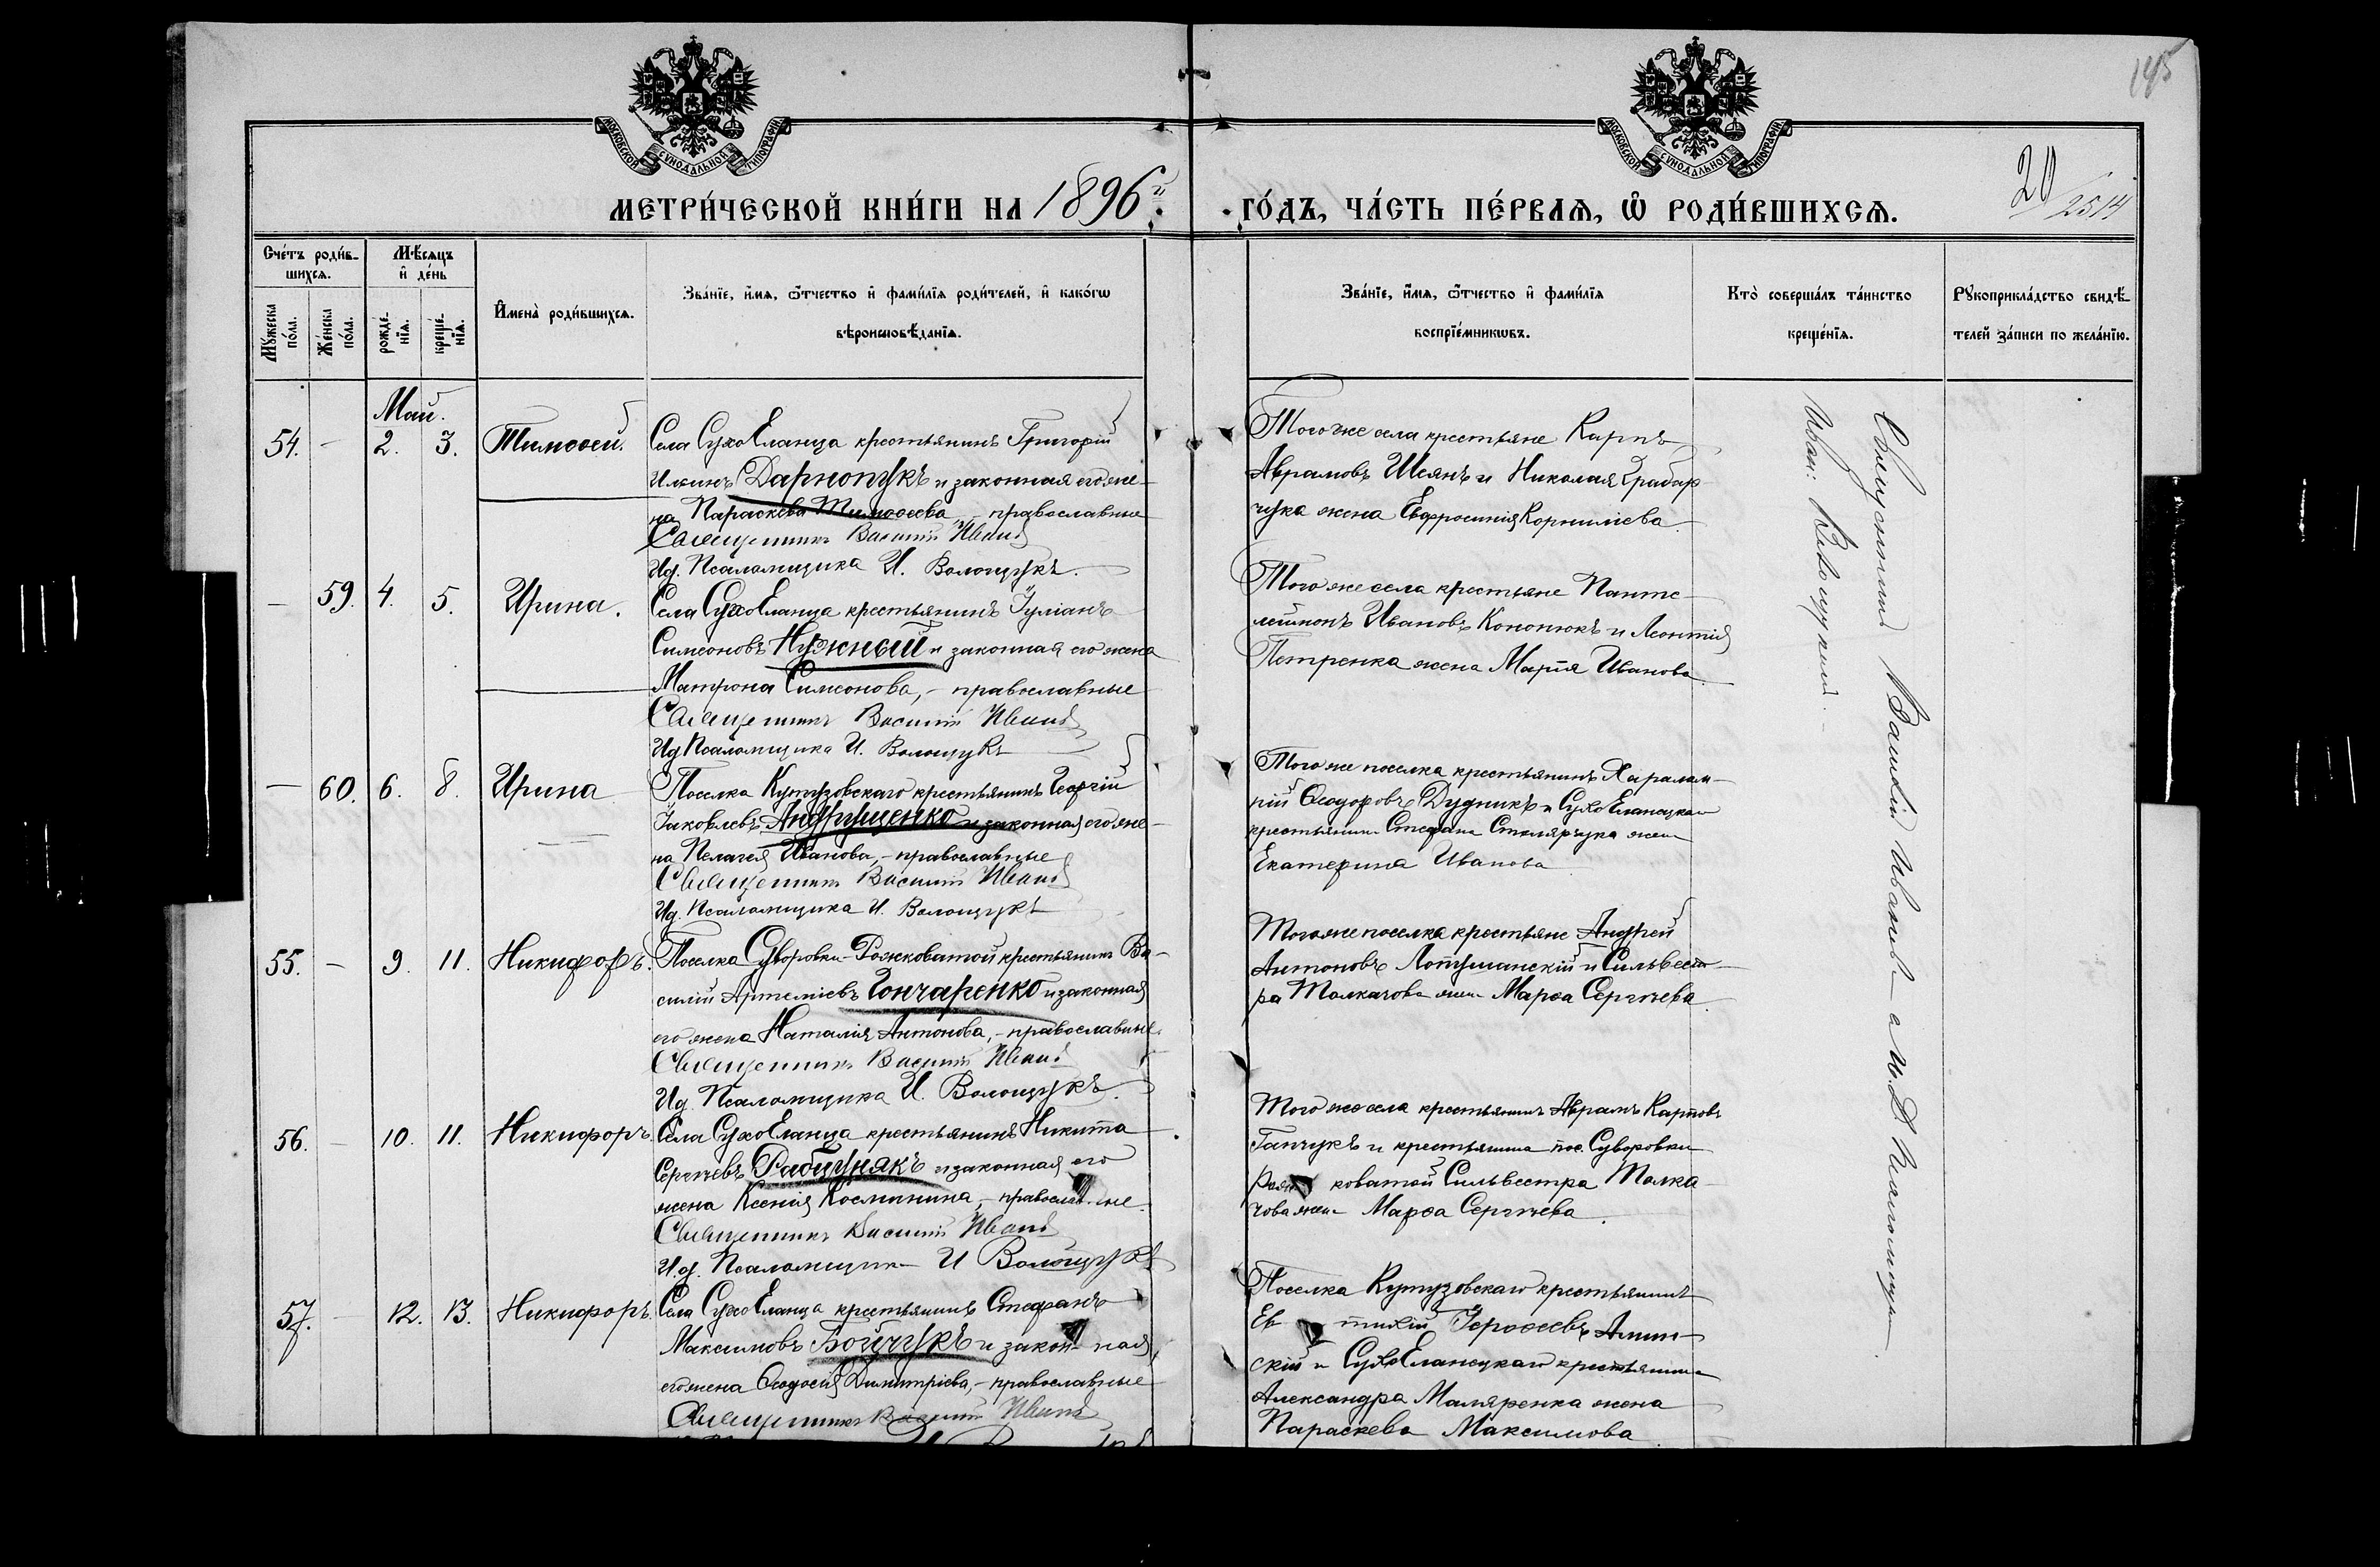 145
МОСКОВСКОЙ СѴНОДАЛЬНОЙ ТИПОГРАФІИ
МОСКОВСКОЙ СѴНОДАЛЬНОЙ ТИПОГРАФІИ
МЕТРИ́ЧЕСКОЙ КНИ́ГИ НА 1896й
ГО́ДЪ, ЧА́СТЬ ПЕ́РВАѦ, Ѡ҆ РОДИ́ВШИХСѦ.
20/2514
Сче́тъ роди́в-
шихсѧ.
Мꙋ́жеска по́ла.
Же́нска по́ла.
Мѣ́сѧцъ
и҆ де́нь
рожде́-нїѧ.
креще́-нїѧ.
И҆мена̀ роди́вшихсѧ.
Зва́нїе, и҆́мѧ, ѻ҆́тчество и҆ фами́лїѧ роди́телей, и҆ како́гѡ
вѣроисповѣ́данїѧ.
Зва́нїе, и҆́мѧ, ѻ҆́тчество и҆ фами́лїѧ
воспрїе́мникѡвъ.
Кто̀ соверша́лъ та́инство
креще́нїѧ.
Рꙋкоприкла́дство свидѣ́-
телей за́писи по жела́нїю.
Май.
54. — 2. 3. Тимоѳей. Села СухоЕланца крестьянинъ Григорій
Дарнопукъ и законная его же-
на Параскева Тимоѳеева, – православные
Священникъ Василій Ивановъ
Ид. Псаломщика И. Волощукъ.
Того же села крестьяне Карпъ
Аврамовъ Шеянъ и Николая Грабар-
чука жена Евфросинія Корниліева
— 59. 4. 5. Ирина. Села СухоЕланца крестьянинъ Іуліанъ
Симеоновъ Нужный и законная его жена
Матрона Симеонова, – православные
Священникъ Василій Ивановъ
Ид Псаломщика И. Волощукъ
Того же села крестьяне Панте-
леймонъ Ивановъ Кононюкъ и Леонтія
Петренка жена Марія Иванова
— 60. 6. 8. Ирина Поселка Кутузовскаго крестьянинъ Георгій
Іаковлевъ Андрущенко и законная его же-
на Пелагея Иванова, – православные
Священникъ Василій Ивановъ
Ид. Псаломщика И. Волощукъ
Того же поселка крестьянинъ Харалам-
пій Ѳеодоровъ Дудникъ и СухоЕланецкаго
крестьянина Стефана Столярчука жена
Екатерина Иванова
55. — 9. 11. Никифоръ. Поселка Суворовки-Рожковатой крестьянинъ Ва-
силій Артеміевъ Гончаренко и законная
его жена Наталія Антонова, – православные.
Священникъ Василій Ивановъ
Ид. Псаломщика И. Волощукъ.
Того же поселка крестьяне Андрей
Антоновъ Лотушанскій и Сильвест-
ра Толкачова жена Марѳа Сергѣева
56. — 10. 11. Никифоръ. Села СухоЕланца крестьянинъ Никита
Сергѣевъ Рабцунякъ и законная его
жена Ксенія Космишина, – православные.
Священникъ Василій Ивановъ
И.д. Псаломщика И Волощукъ
Того же села крестьянинъ Аврамъ Карповъ
Гапчукъ и крестьянина пос. Суворовки
Рож коватой Сильвестра Толка-
чова жена Марѳа Сергѣева.
57. — 12. 13. Никифоръ. Села СухоЕланца крестьянинъ Стефанъ
Максимовъ Бойчукъ и закон- ная
его жена Ѳеодосія Димитріева, – православные
Священникъ Василій Ивановъ
Поселка Кутузовскаго крестьянинъ
Ев тихій Іероѳеевъ
и СухоЕланецкаго крестьянина
Александра Маляренка жена
Параскева Максимова
Священникъ Василій Ивановъ а И.Д. Псаломщика
Иван: Волощукъ